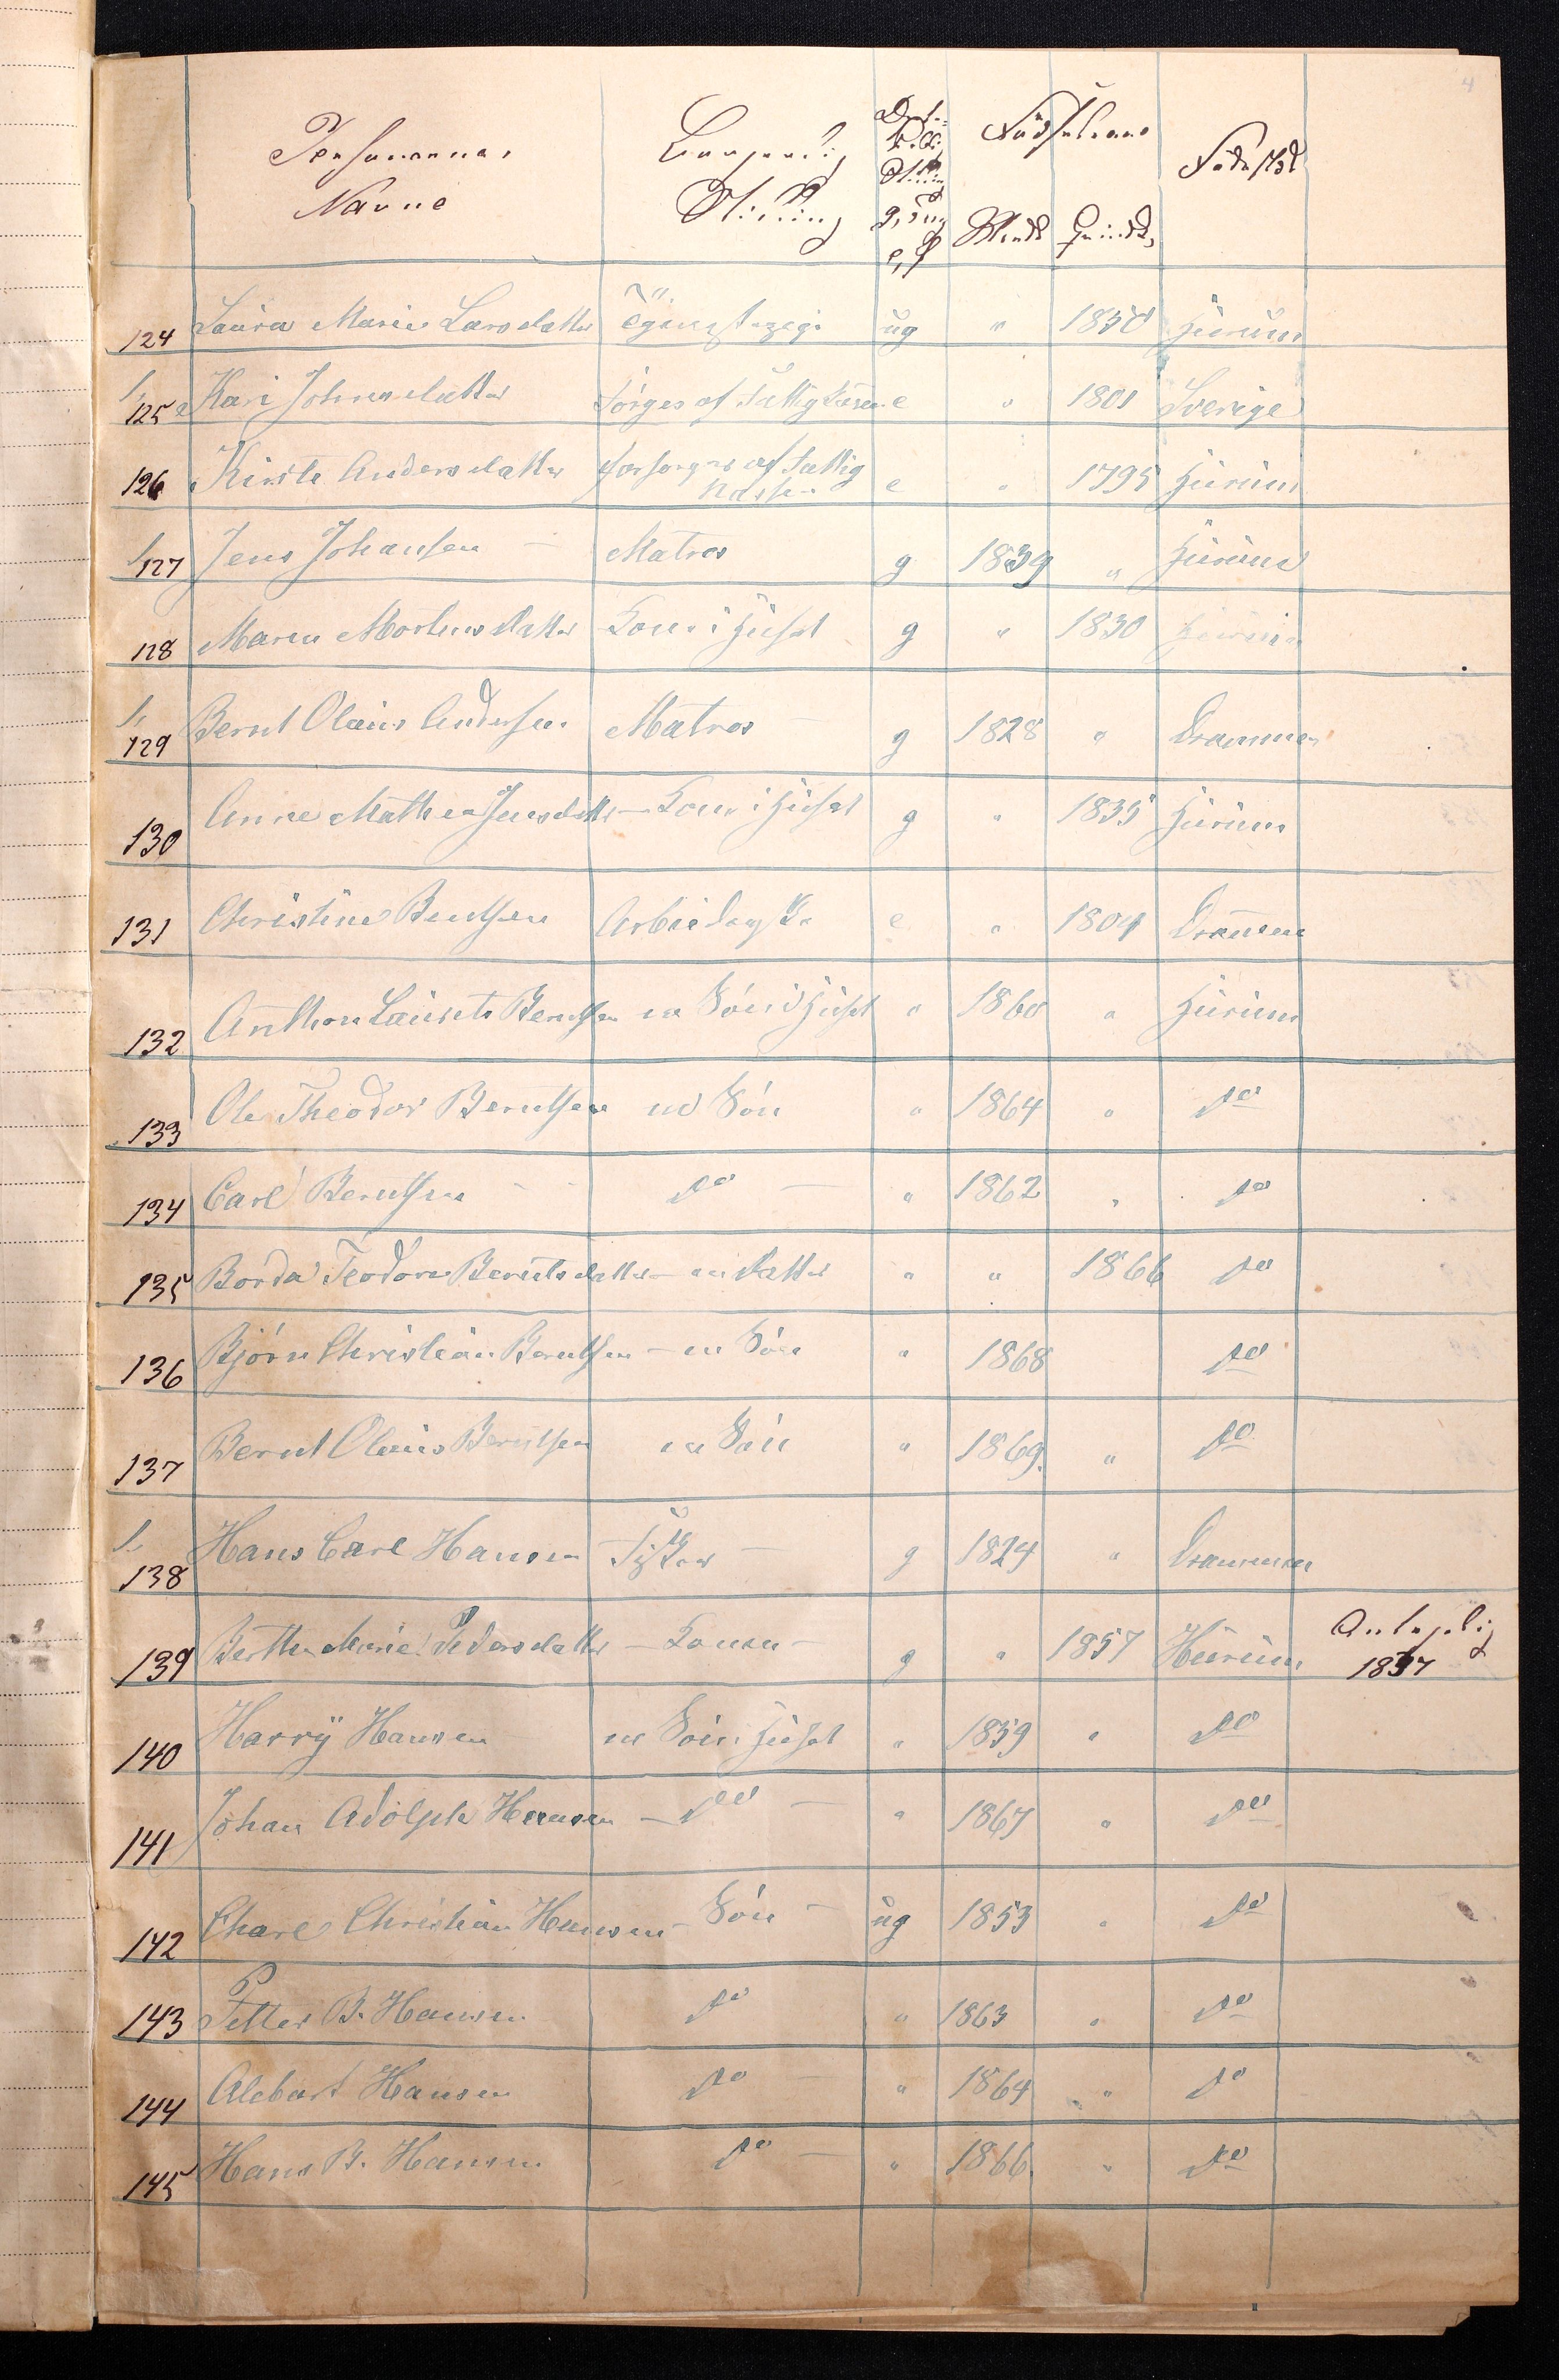 4
Personernes Navne
Borgerlig Stilling
Ægteskabelig Stilling g, ug, e, f
Fødselsaar
Mands
Qvinds
Fødested
124 Laura Marie Larsdatter ug " 1850 Hurum
1. 125 Kari Johnsdatter Sørges af Fattig Kassen e " 1801 Sverige
126 Kirste Andersdatter forsørges af Fattig Kassen e " 1795 Hurum
1. 127 Jens Johansen — Matros g 1839 " Hurum
128 Maren Mortensdatter Kone i Huset g " 1830 Hurum
1. 129 Bernt Olaus Andersen Matros g 1828 " Drammen
130 Anne Mathea Jensdatter — Kone i Huset g " 1835 Hurum
131 Christine Bentsen e " 1804 Drammen
132 Anthon Laurets Berntsen en Søn i Huset " 1860 " Hurum
133 Ole Theodor Berntsen en Søn " 1864 " do
134 Carl Berntsen do — " 1862 " do
135 Borda Teodora Berntsdatter — en datter " " 1866 do
136 Bjørn Christian Berntsen — en Søn " 1868 do
137 Bernt Olaus Berntsen en Søn " 1869. " do
1. 138 Hans Carl Hansen Fisker — g 1824 " Drammen
139 Berthe Marie Pedersdatter — Konen — g " 1857 Hurum Antagelig 1837
140 Harry Hansen en Søn i Huset " 1859 " do
141 Johan Adolph Hansen — do — " 1867 " do
142 Charl Christian Hansen — Søn — ug 1853 " do
143 Petter B. Hansen do " 1863 " do
144 Alebart Hansen do — " 1864 " do
145 Hans B. Hansen do — " 1866. " do